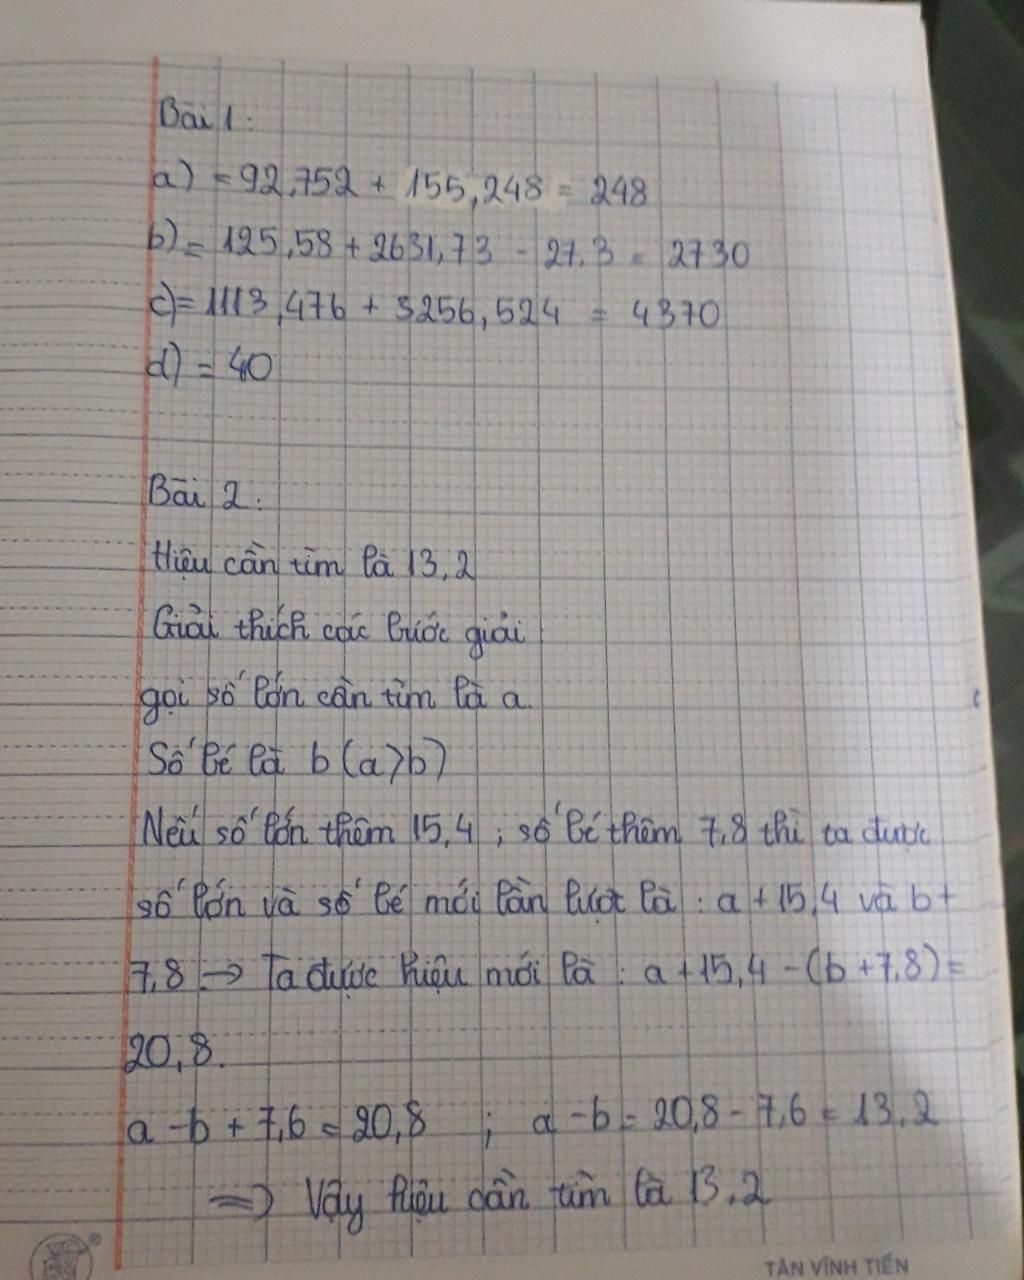 Bài 1:
a) = 92,752 + 155,248 = 248
b) = 125,58 + 2631,73 - 27,3 = 2730
c) = 1113,476 + 3256,524 = 4370
d) = 40
Bài 2:
Hiệu cần tìm là 13,2
Giải thích các bước giải
gọi số lớn cần tìm là a
Số bé là b (a>b)
Nếu số lớn thêm 15,4 ; số bé thêm 7,8 thì ta được
số lớn và số bé mới lần lượt là : a + 15,4 và b +
7,8 → Ta được hiệu mới là : a + 15,4 - (b + 7,8) =
20,8.
a - b + 7,6 = 20,8 ; a - b = 20,8 - 7,6 = 13,2
⇒ Vậy hiệu cần tìm là 13,2
TÂN VĨNH TIẾN